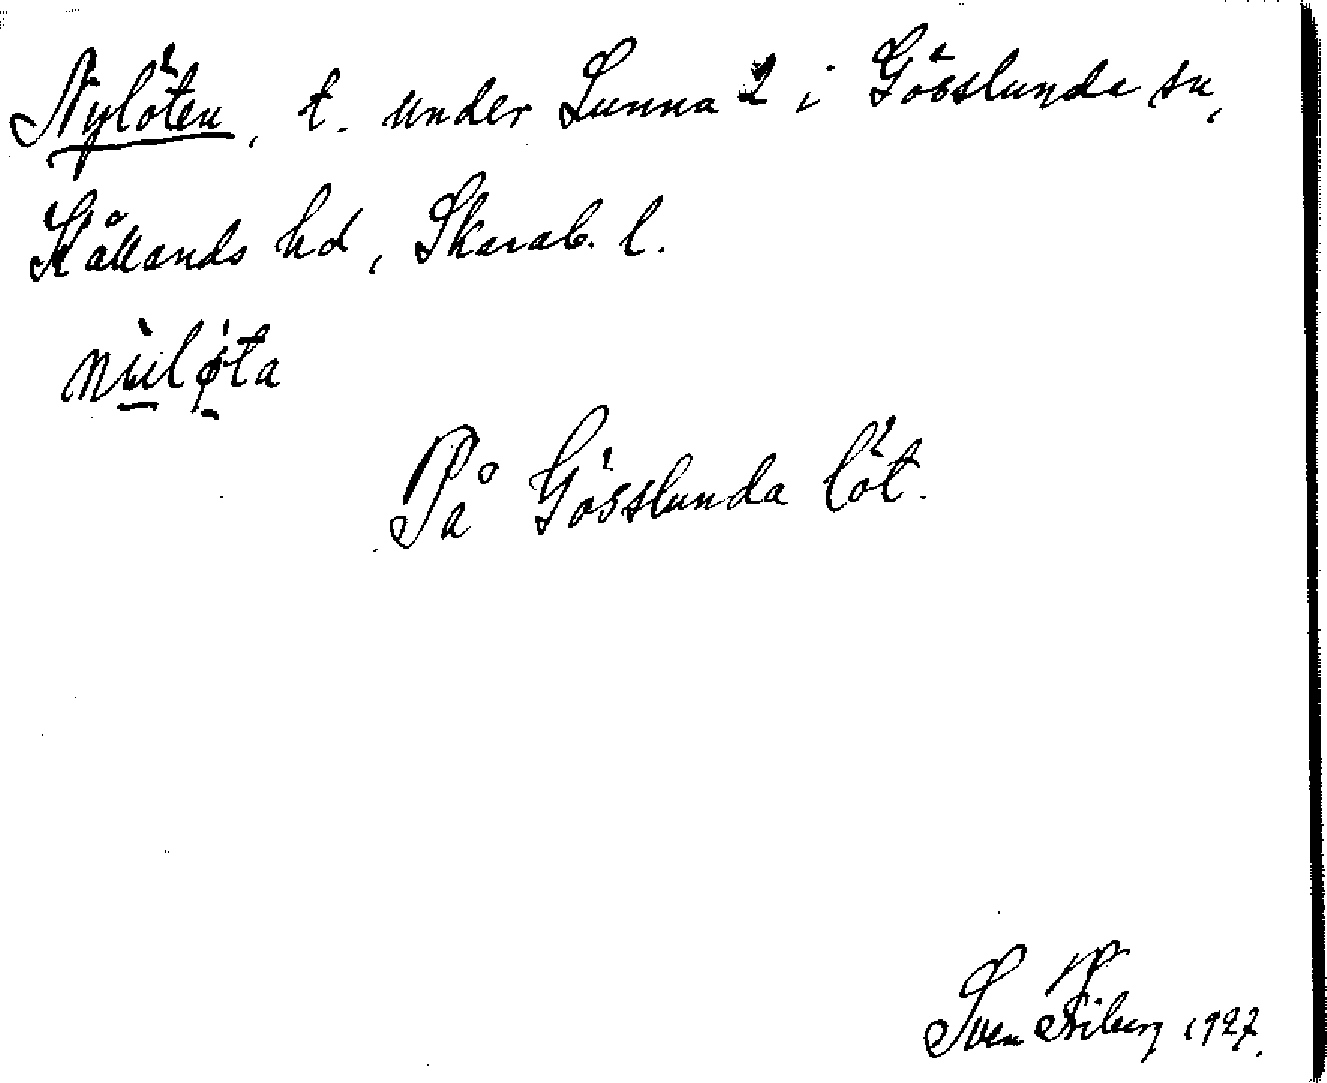 Nylöten, t. under Lunna 2 i Gösslunda sn,
Kållands hd, Skarab. l.
nùlǿta
På Gösslunda löt.
Sven Friberg 1927.